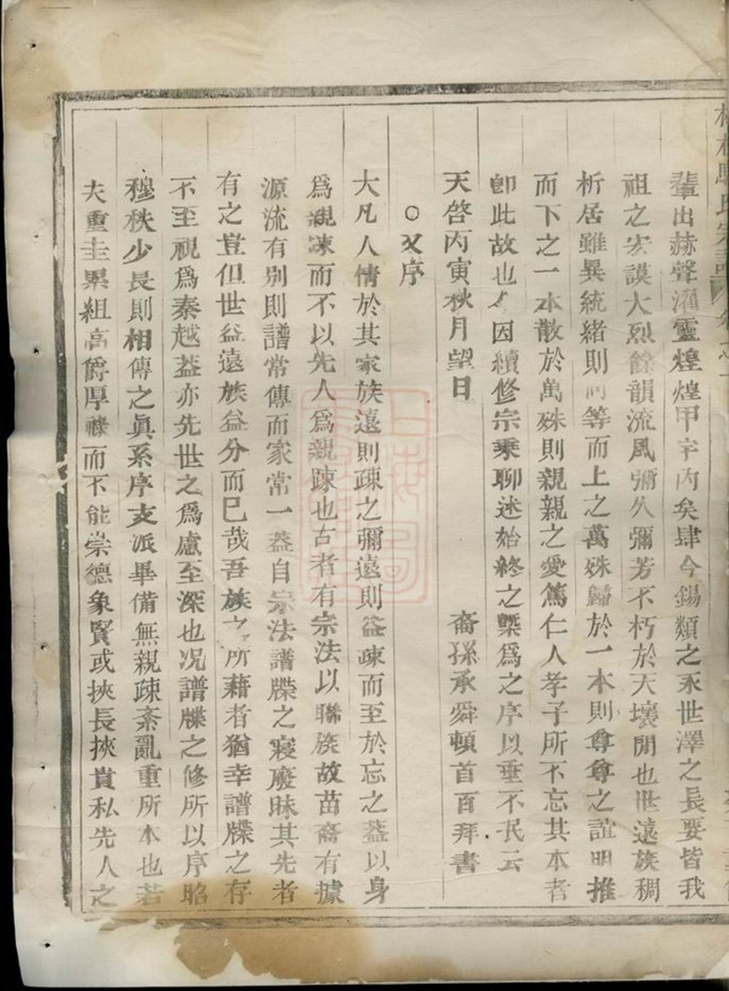 輩出赫聲濯靈煌煌甲宇內矣肆今錫類之永世澤之長要皆我
祖之宏謨大烈餘韻流風彌久彌芳不朽於天壤間也世遠族稠
析居雖異統緒則同等而上之萬殊歸於一本則尊尊之誼明推
而下之一本散於萬殊則親親之愛篤仁人孝子所不忘其本者
卽此故也因續修宗乘聊述始終之槩爲之序以垂不泯云
天啓丙寅秋月望日 裔孫承舜頓首百拜書
○又序
大凡人情於其家族遠則疎之彌遠則益疎而至於忘之葢以身
爲親疎而不以先人爲親疎也古者有宗法以聯族故苗裔有據
源流有別則譜常傳而家常一葢自宗法譜牒之寢廢昧其先者
有之豈但世益遠族益分而已哉吾族之所藉者猶幸譜牒之存
不至視爲秦越葢亦先世之爲慮至深也况譜牒之修所以序昭
穆秩少長則相傳之眞系序支派畢備無親疎紊亂重所本也若
夫重圭累組高爵厚祿而不能崇德象賢或挾長挾貴私先人之